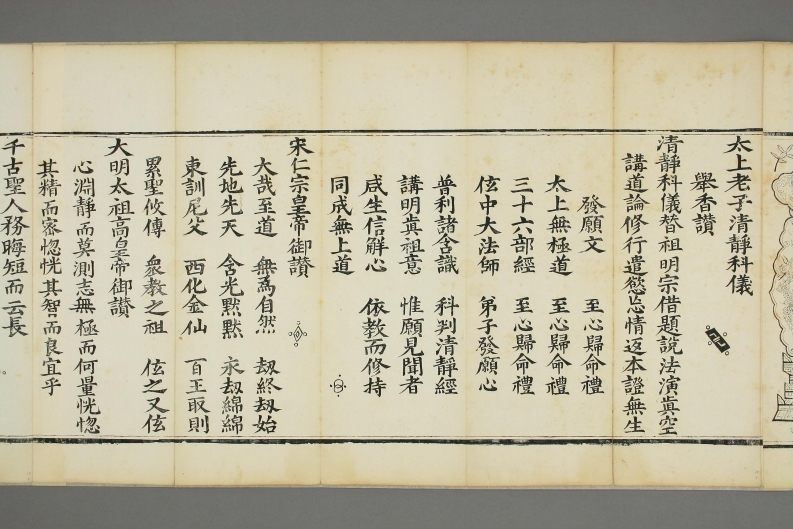 太上老子清靜科儀
舉香讚
清靜科儀替祖明宗借題說法演眞空
講道論修行遣慾忘情返本證無生
發願文 至心歸命禮
太上無極道 至心歸命禮
三十六部經 至心歸命禮
伭中大法師 弟子發願心
普利諸含識 科判清靜經
講明眞祖意 惟願見聞者
咸生信解心 依教而修持
同成無上道
宋仁宗皇帝御讚
大哉至道 無爲自然 刼終刼始
先地先天 含光黙黙 永刼綿綿
東訓尼父 西化金仙 百王取則
累聖攸傳 衆教之祖 伭之又伭
大明太祖高皇帝御讚
心淵靜而莫測志無極而何量恍惚
其精而密惚恍其智而良宜乎
千古聖人務晦短而云長